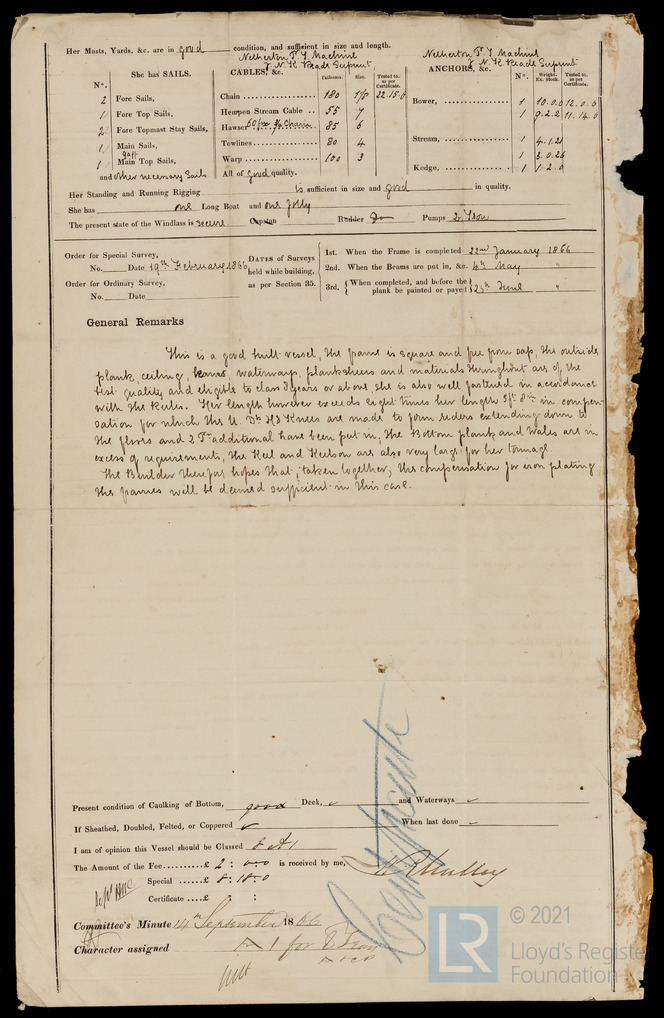 Her Masts, Yards, &c. are in good condition, and sufficient in size and length.
Netherton P. T Machine
J. N. K Reade Suprint
Netherton P. T Machine
J. N. K Reade Suprint
N°. She has SAILS.
CABLES, &c. Fathoms. Size. Tested to, as per Certificate.
ANCHORS, &c. N°. Weight. Ex. Stock. Tested to, as per Certificate.
2 Fore Sails,
1 Fore Top Sails,
2 Fore Topmast Stay Sails,
1 Main Sails,
1 gaff Main Top Sails,
and other necessary Sails
Chain 180 22.15.0
Hempen Stream Cable 55 7
Hawser 85 6
Towlines 80 4
Warp 100 3
All of good quality.
Bower, 1 10.0.0 12.0.0
1 9.2.2 11.14.0
Stream, 1 4.1.21
1 3.0.26
Kedge, 1 1.2.0
Her Standing and Running Rigging is sufficient in size and good in quality.
She has one Long Boat and one Jolly
The present state of the Windlass is secure Capstan Rudder Do Pumps 2 Iron
Order for Special Survey,
No. Date 19th February 1866
Order for Ordinary Survey,
No. Date
DATES of Surveys held while building, as per Section 35.
1st. When the Frame is completed 22nd January 1866
2nd. When the Beams are put in, &c. 4th May "
3rd. When completed, and before the plank be painted or payed 25th June "
General Remarks
This is a good built vessel, the frame is square and free from sap, the outside
plank, ceiling, beams, waterways, planksheers and materials throughout are of the
best quality and eligible to class 8 years or above she is also well fastened in accordance
with the Rules. Her length however exceeds eight times her length 5ft 8in in compen
sation for which the U. Dk HD Knees are made to form riders extending down to
the floors and 2 Pr additional have been put in; the Bottom plank and Wales are in
excess of requirements, the Keel and Keelson are also very large for her tonnage
The Builder therefore hopes that, taken together, this compensation for iron plating
the frames will be deemed sufficient in this case.
Present condition of Caulking of Bottom, good Deck, and Waterways
If Sheathed, Doubled, Felted, or Coppered When last done
I am of opinion this Vessel should be Classed 8 A1
The Amount of the Fee £ 2 : 0.0 is received by me,
Special £ 8.18.0
Certificate £ : :
Committee's Minute 14th September 1866
Character assigned A 1 for 8 Years
© 2021
LR
Lloyd's Register
Foundation